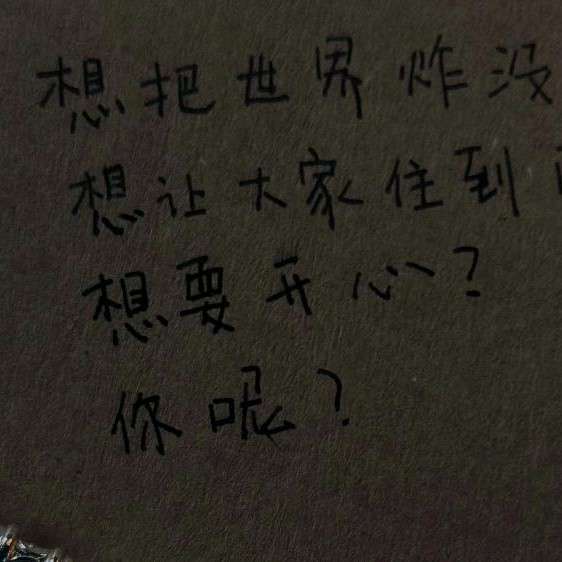 想把世界炸没
想让大家住到
想要开心？
你呢？